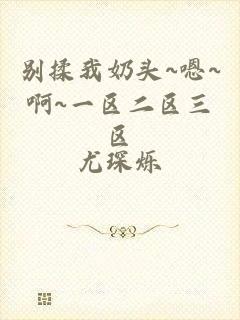 别揉我奶头~嗯~
啊~一区二区三
区
尤琛烁